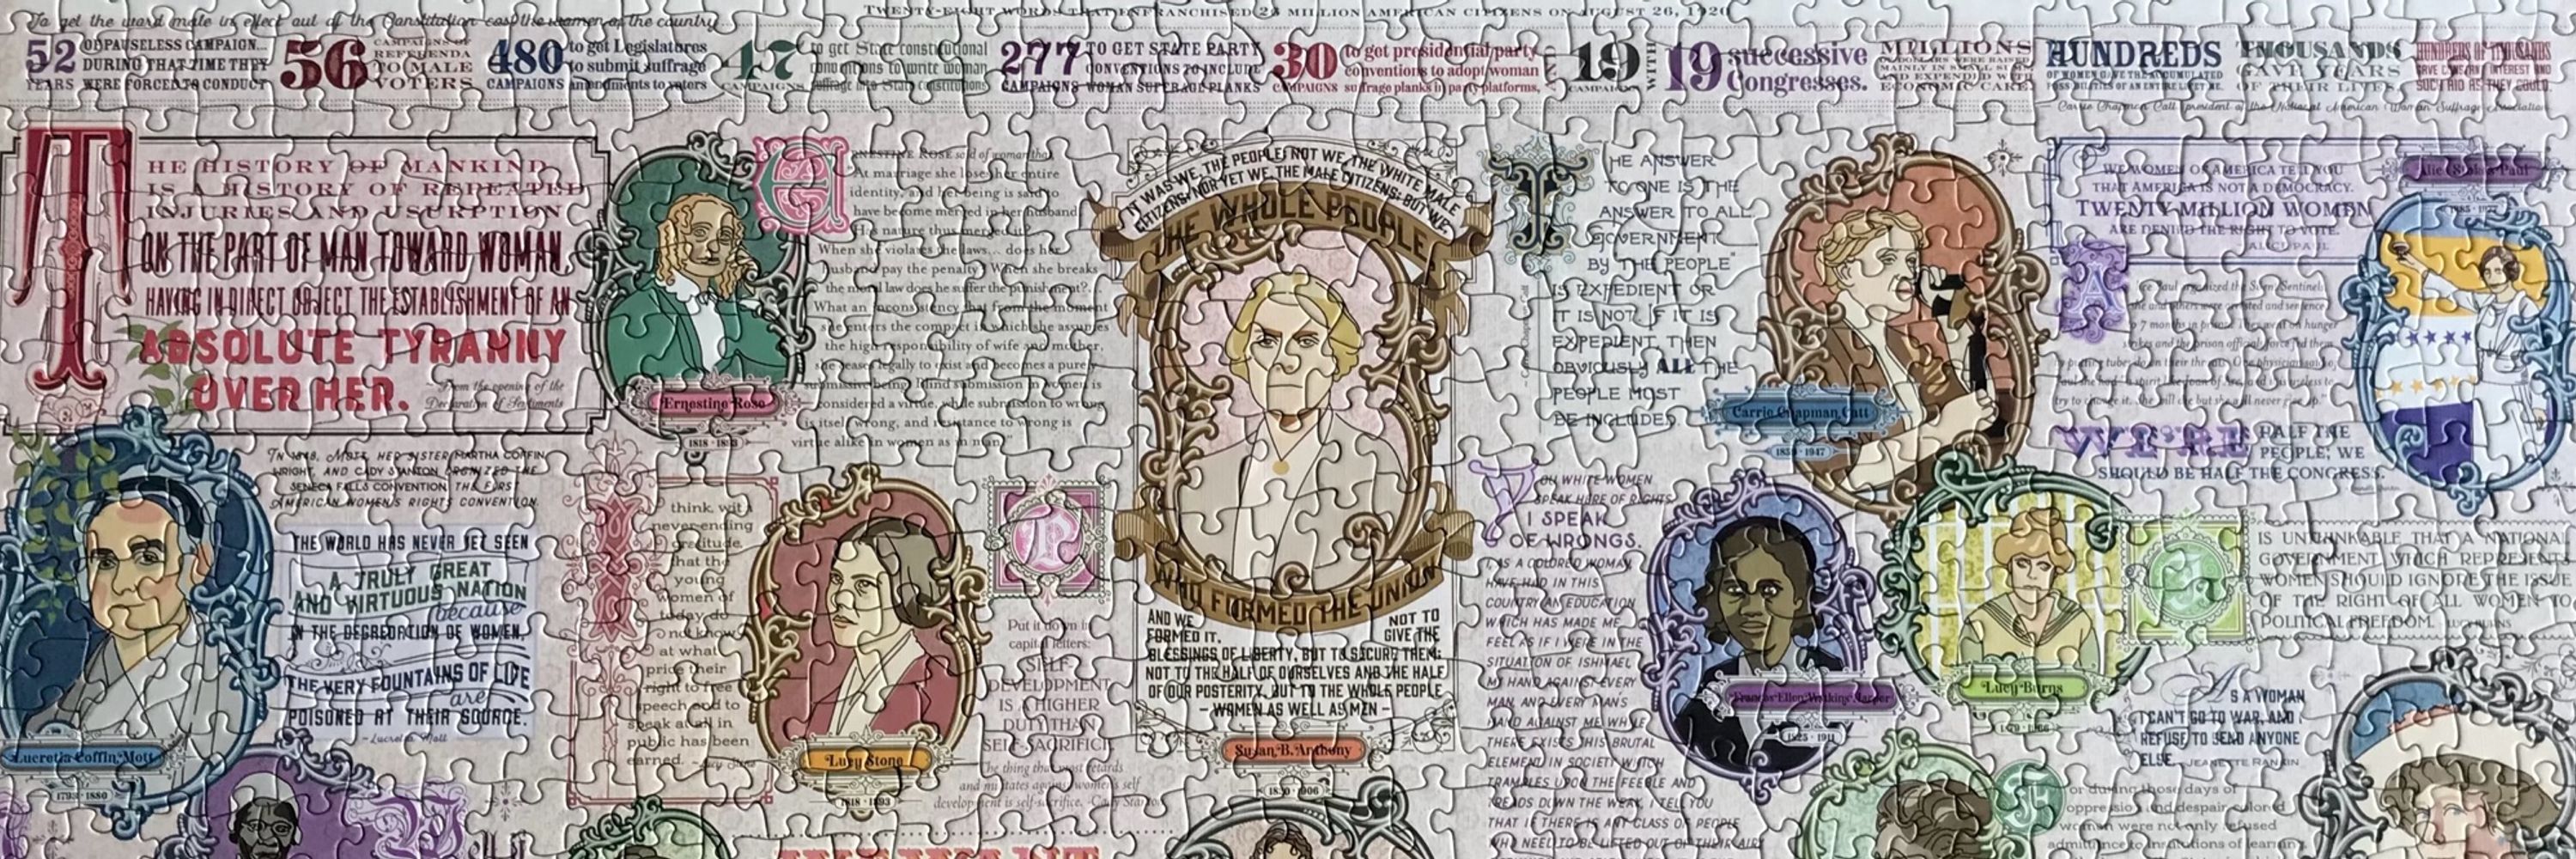 To get the word male in effect out of the Constitution cost the women of the country
TWENTY-EIGHT WORDS THAT ENFRANCHISED 26 MILLION AMERICAN CITIZENS ON AUGUST 26, 1920
52 YEARS
OF PAUSELESS CAMPAIGN...
DURING THAT TIME THEY
WERE FORCED TO CONDUCT
56
CAMPAIGNS OF
REFERENDA
TO MALE
VOTERS
480 CAMPAIGNS
to get Legislatures
to submit suffrage
amendments to voters
47 CAMPAIGNS
to get State constitutional
conventions to write woman
suffrage into State constitutions
277 CAMPAIGNS
TO GET STATE PARTY
CONVENTIONS TO INCLUDE
WOMAN SUFFRAGE PLANKS
30 CAMPAIGNS
to get presidential party
conventions to adopt woman
suffrage planks in party platforms,
19 CAMPAIGNS
WITH
19 successive
Congresses.
MILLIONS
OF DOLLARS WERE RAISED
MAINLY IN SMALL SUMS
AND EXPENDED WITH
ECONOMIC CARE.
HUNDREDS
OF WOMEN GAVE THE ACCUMULATED
POSSIBILITIES OF AN ENTIRE LIFETIME,
THOUSANDS
GAVE YEARS
OF THEIR LIVES,
HUNDREDS OF THOUSANDS
GAVE CONSTANT INTEREST AND
SUCH AID AS THEY COULD.
Carrie Chapman Catt President of the National American Woman Suffrage Association
THE HISTORY OF MANKIND
IS A HISTORY OF REPEATED
INJURIES AND USURPTION
ON THE PART OF MAN TOWARD WOMAN,
HAVING IN DIRECT OBJECT THE ESTABLISHMENT OF AN
ABSOLUTE TYRANNY
OVER HER.
From the opening of the
Declaration of Sentiments
Ernestine Rose
ERNESTINE ROSE said of woman that
"At marriage she loses her entire
identity, and her being is said to
have become merged in her husband
Has nature thus merged it?
When she violates the laws... does her
husband pay the penalty? When she breaks
the moral law does he suffer the punishment?...
What an inconsistency that from the moment
she enters the compact in which she assumes
the high responsibility of wife and mother,
she ceases legally to exist and becomes a purely
submissive being. Blind submission in women is
considered a virtue, while submission to wrong
is itself wrong, and resistance to wrong is
virtue alike in women as in man."
IT WAS WE, THE PEOPLE; NOT WE, THE WHITE MALE
CITIZENS; NOR YET WE, THE MALE CITIZENS; BUT WE,
THE WHOLE PEOPLE,
WHO FORMED THE UNION.
AND WE
FORMED IT,
NOT TO
GIVE THE
BLESSINGS OF LIBERTY, BUT TO SECURE THEM;
NOT TO THE HALF OF OURSELVES AND THE HALF
OF OUR POSTERITY, BUT TO THE WHOLE PEOPLE
- WOMEN AS WELL AS MEN -
Susan B. Anthony
1820 · 1906
THE ANSWER
TO ONE IS THE
ANSWER TO ALL.
GOVERNMENT
BY "THE PEOPLE"
IS EXPEDIENT OR
IT IS NOT. IF IT IS
EXPEDIENT, THEN
OBVIOUSLY ALL THE
PEOPLE MOST
BE INCLUDED.
Carrie Chapman Catt
1859 · 1947
WE WOMEN OF AMERICA TELL YOU
THAT AMERICA IS NOT A DEMOCRACY.
TWENTY MILLION WOMEN
ARE DENIED THE RIGHT TO VOTE.
- ALICE PAUL
Alice Stokes Paul
1885 · 1977
Alice Paul organized the Silent Sentinels
she and others were arrested and sentenced
to 7 months in prison. They went on hunger
strikes and the prison officials force fed them
WE'RE HALF THE
PEOPLE; WE
SHOULD BE HALF THE CONGRESS.
IN 1848, MOTT, HER SISTER MARTHA COFFIN
WRIGHT, AND CADY STANTON ORGNIZED THE
SENECA FALLS CONVENTION, THE FIRST
AMERICAN WOMEN'S RIGHTS CONVENTION.
THE WORLD HAS NEVER YET SEEN
A TRULY GREAT
AND VIRTUOUS NATION
because
IN THE DEGREDATION OF WOMEN,
THE VERY FOUNTAINS OF LIFE
are
POISONED AT THEIR SOURCE.
- Lucretia Mott
Lucretia Coffin Mott
1793 · 1880
I think, with
never-ending
gratitude,
that the
young
women of
today do
not know
at what
price their
right to free
speech and to
speak at all in
public has been
earned. - Lucy Stone
Lucy Stone
1818 · 1893
P
Put it down in
capital letters:
SELF-
DEVELOPMENT
IS A HIGHER
DUTY THAN
SELF-SACRIFICE.
The thing that most retards
and militates against women's self
development is self-sacrifice. -Cady Stanton
YOU WHITE WOMEN
SPEAK HERE OF RIGHTS.
I SPEAK
OF WRONGS.
I, AS A COLORED WOMAN,
HAVE HAD IN THIS
COUNTRY AN EDUCATION
WHICH HAS MADE ME
FEEL AS IF I WERE IN THE
SITUATION OF ISHMAEL,
MY HAND AGAINST EVERY
MAN, AND EVERY MAN'S
HAND AGAINST ME. WHILE
THERE EXISTS THIS BRUTAL
ELEMENT IN SOCIETY WHICH
TRAMPLES UPON THE FEEBLE AND
TREADS DOWN THE WEAK, I TELL YOU
THAT IF THERE IS ANY CLASS OF PEOPLE
WHO NEED TO BE LIFTED OUT OF THEIR AIRY
Frances Ellen Watkins Harper
1825 · 1911
Lucy Burns
1879 · 1966
IT IS UNTHINKABLE THAT A NATIONAL
GOVERNMENT WHICH REPRESENTS
WOMEN SHOULD IGNORE THE ISSUE
OF THE RIGHT OF ALL WOMEN TO
POLITICAL FREEDOM. LUCY BURNS
AS A WOMAN
I CAN'T GO TO WAR, AND I
REFUSE TO SEND ANYONE
ELSE. - JEANETTE RANKIN
For during those days of
oppression and despair, colored
women were not only refused
admittance to institutions of learning,